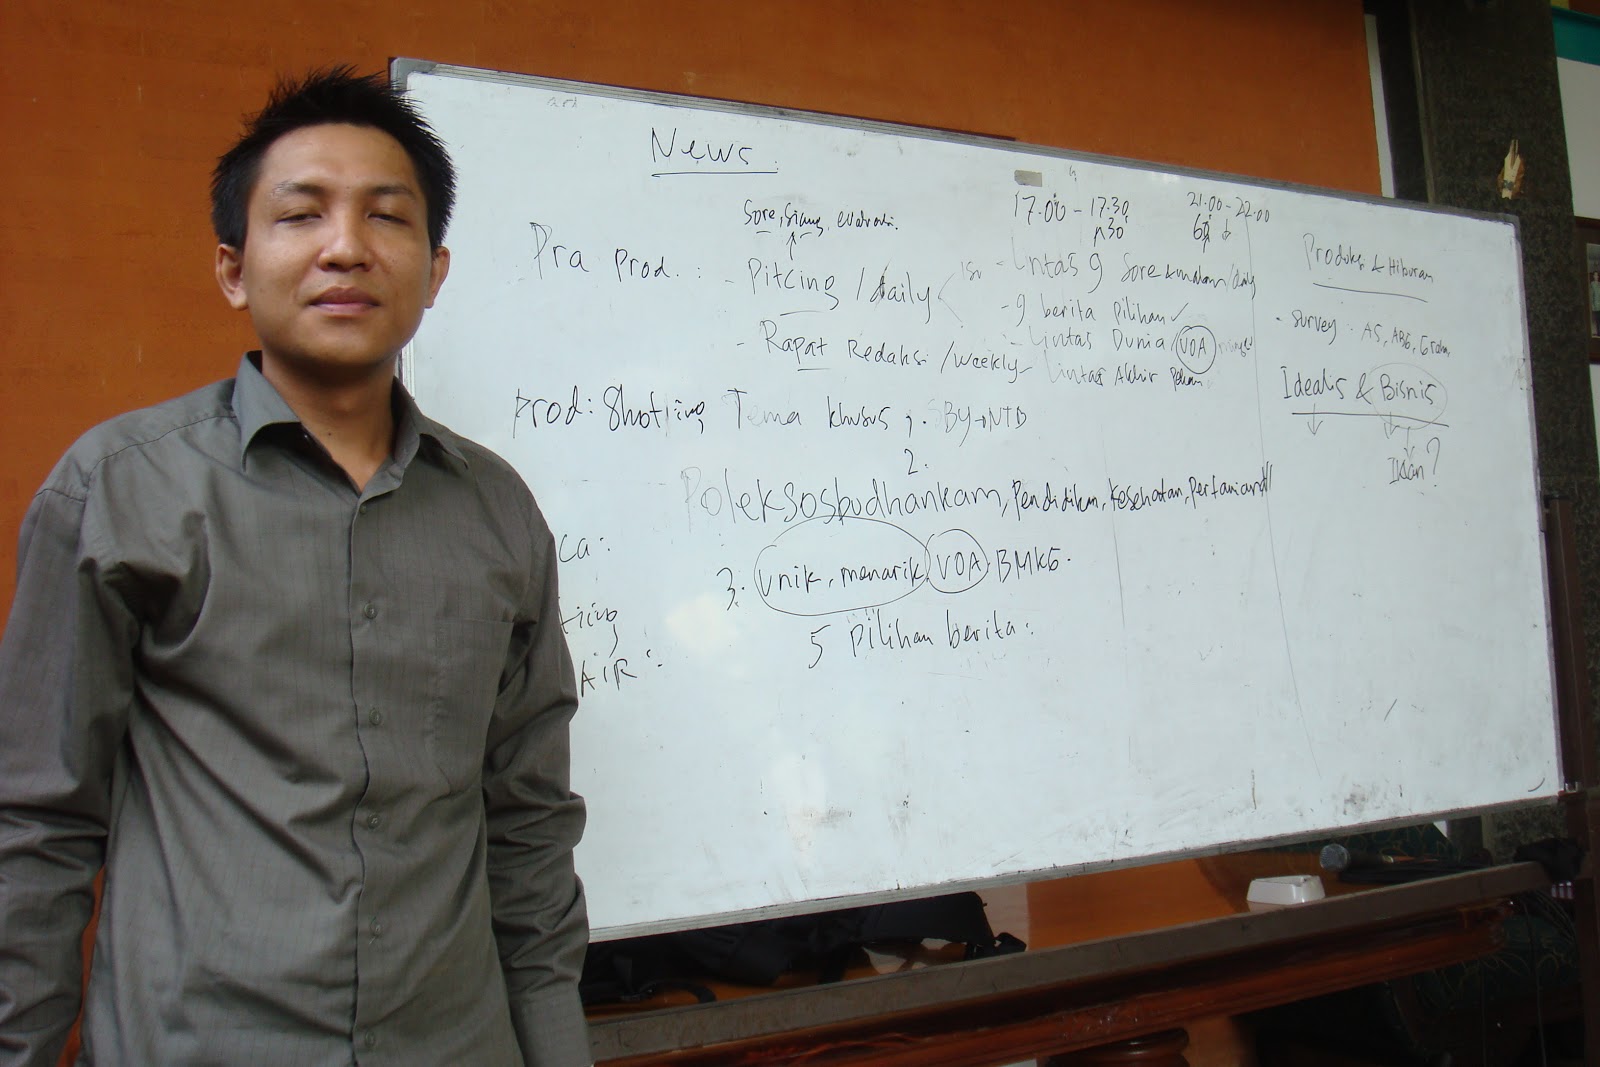 News.
Sore, Siang, evaluasi.
17.00 - 17.30
30'
21.00 - 22.00
60'
Pra prod. : - Pitcing / daily
- Rapat Redaksi / weekly
- Lintas 9 Sore & malam / daily
- 9 berita pilihan ✓
- Lintas Dunia / VOA
- Lintas Akhir Pekan
Prod : Shotting Tema khusus ; . SBY → NTB
2.
Poleksosbudhankam, Pendidikan, Kesehatan, Pertanian dll
3. Unik, menarik, VOA, BMKG.
5 pilihan berita :
ca :
AIR :
Produksi & Hiburan
- Survey .
Idealis & Bisnis
Iklan ?